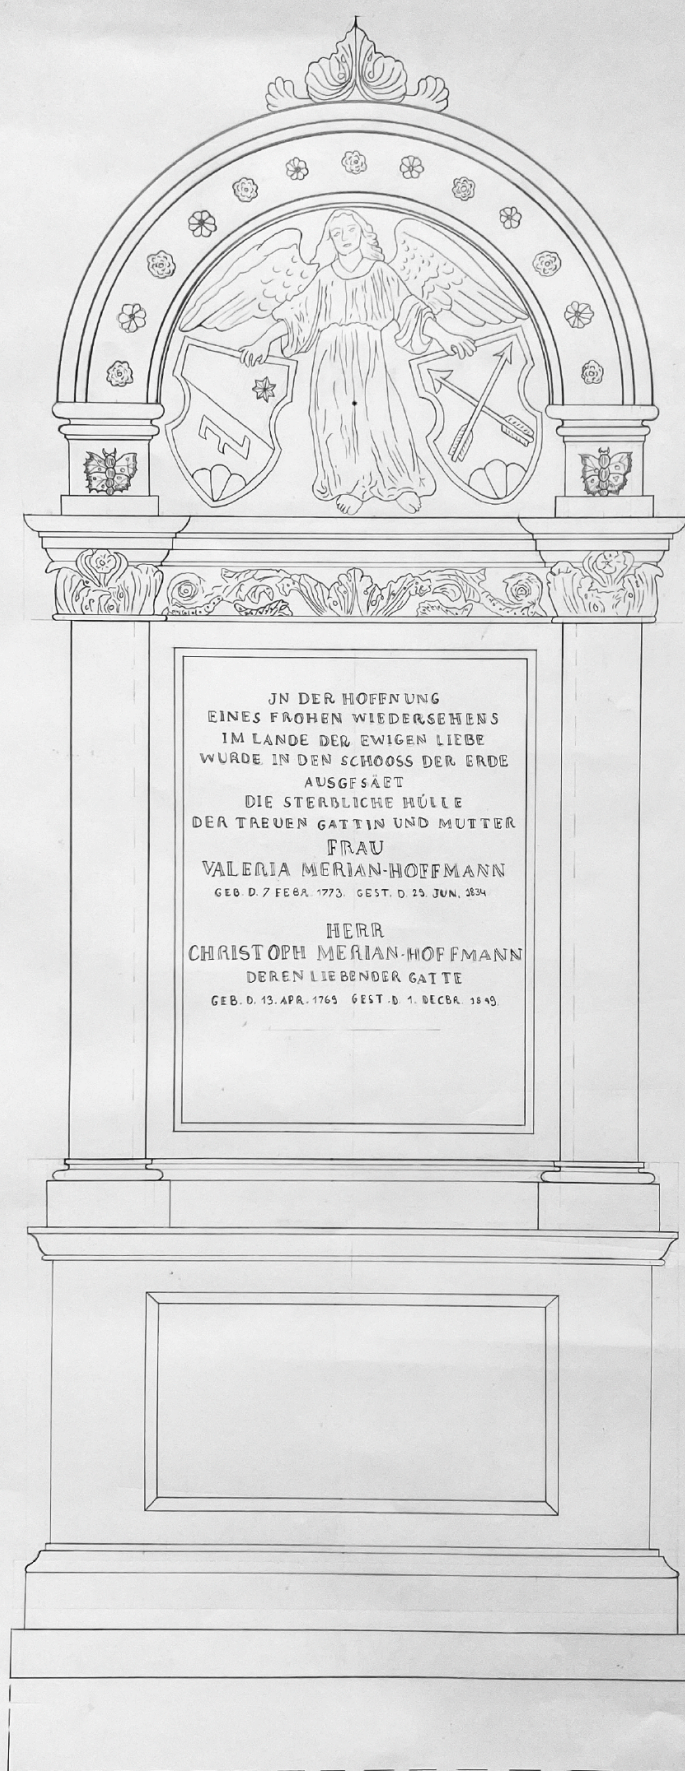 JN DER HOFFNUNG
EINES FROHEN WIEDERSEHENS
IM LANDE DER EWIGEN LIEBE
WURDE IN DEN SCHOOSS DER ERDE
AUSGESÄET
DIE STERBLICHE HÜLLE
DER TREUEN GATTIN UND MUTTER
FRAU
VALERIA MERIAN-HOFFMANN
GEB. D. 7 FEBR. 1773. GEST. D. 29. JUN. 1834
HERR
CHRISTOPH MERIAN-HOFFMANN
DEREN LIEBENDER GATTE
GEB. D. 13. APR. 1769 GEST. D 1. DECBR. 1849.